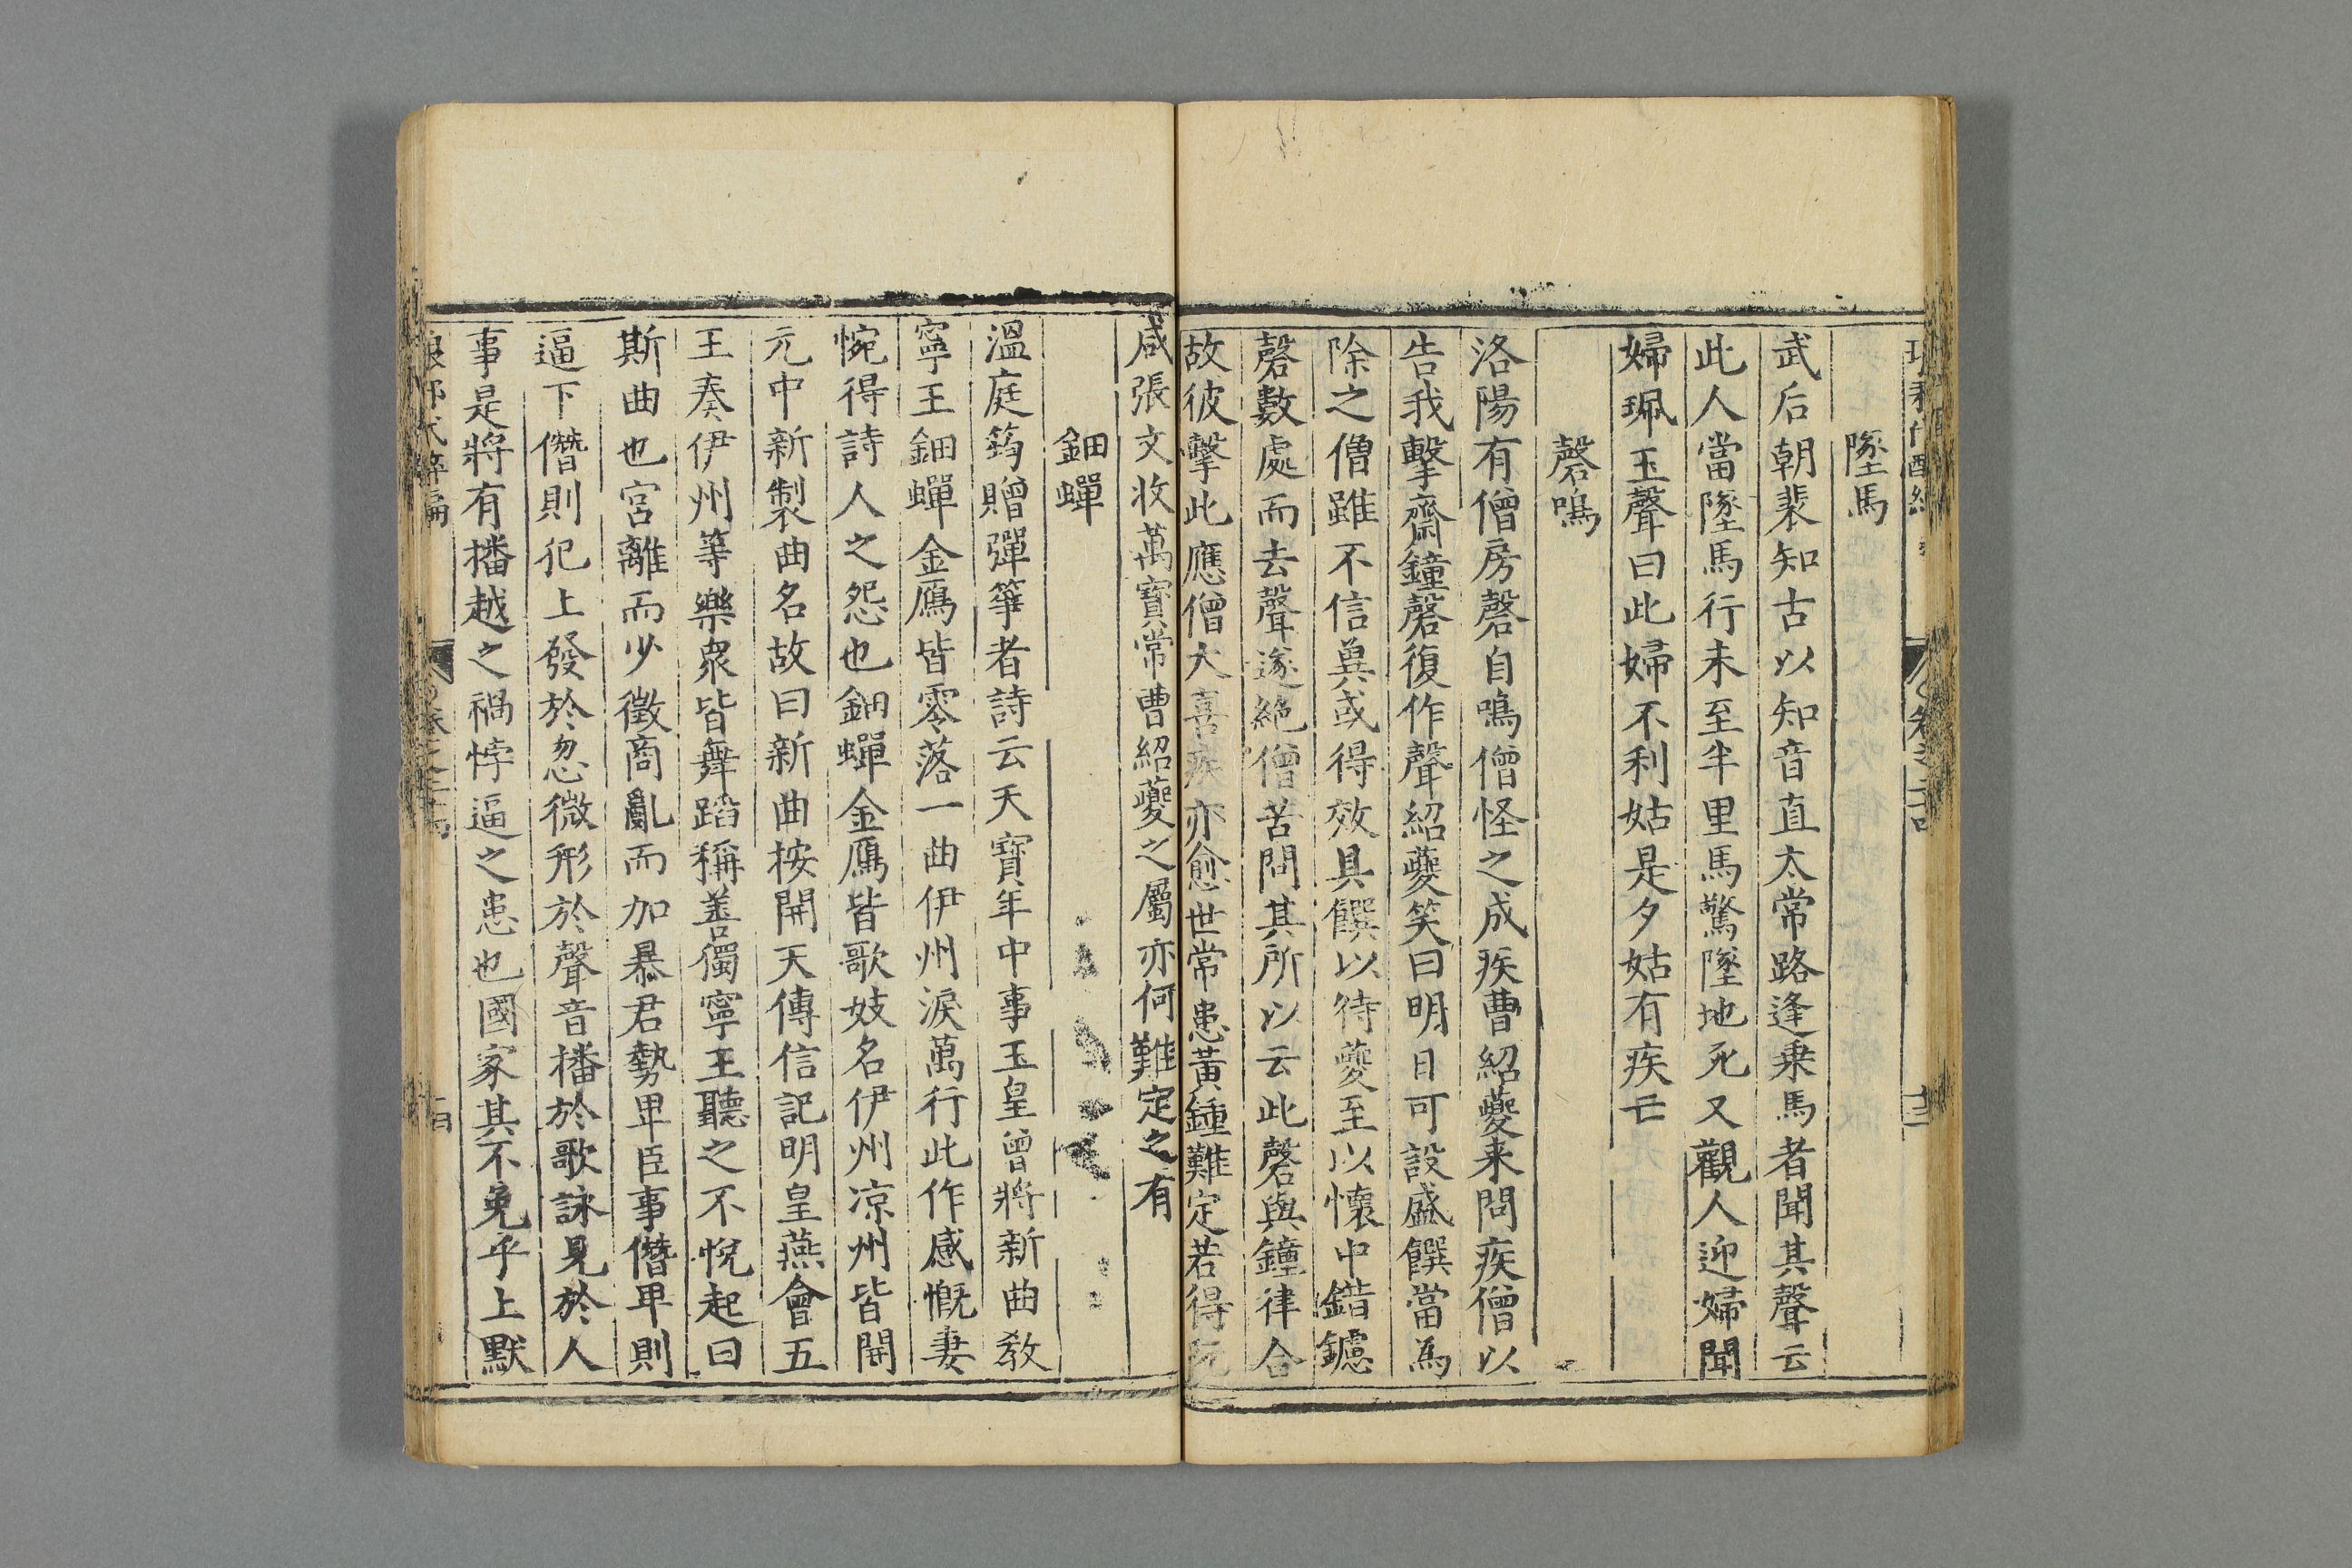 墜馬
武后朝裴知古以知音直太常路逢乗馬者聞其聲云
此人當墜馬行未至半里馬驚墜地死又觀人迎婦聞
婦珮玉聲曰此婦不利姑是夕姑有疾亡
磬鳴
洛陽有僧房磬自鳴僧怪之成疾曹紹夔来問疾僧以
告我擊齋鐘磬復作聲紹夔笑曰明日可設盛饌當為
除之僧雖不信兾或得效具饌以待夔至以懷中錯鑢
磬數處而去聲遂絶僧苦問其所以云此磬與鐘律合
故彼擊此應僧大喜疾亦愈世常患黃鍾難定若得阮
咸張文收萬寶常曹紹夔之屬亦何難定之有
鈿蟬
溫庭筠贈彈箏者詩云天寶年中事玉皇曾將新曲教
寧王鈿蟬金鴈皆零落一曲伊州淚萬行此作感慨妻
惋得詩人之怨也鈿蟬金鴈皆歌妓名伊州凉州皆開
元中新製曲名故曰新曲按開天傳信記明皇燕會五
王奏伊州等樂衆皆舞蹈稱善獨寧王聽之不悅起曰
斯曲也宮離而少徵商亂而加暴君勢卑臣事僭卑則
逼下僭則犯上發於忽微形於聲音播於歌詠見於人
事是將有播越之禍悖逼之患也國家其不免乎上默